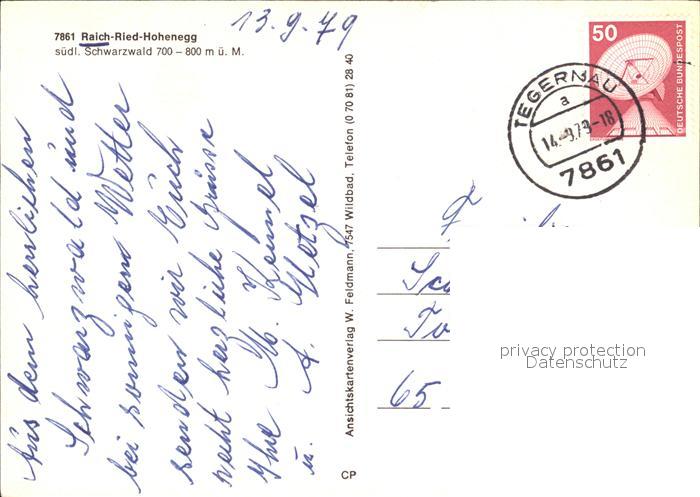 7861 Raich-Ried-Hohenegg
südl. Schwarzwald 700 – 800 m ü. M.
13.9.79
Aus dem herrlichen
Schwarzwald und
bei sonnigem Wetter
senden wir Euch
recht herzliche Grüsse
Ihre M. Keimel
u. A. Hetzel
Ansichtskartenverlag W. Feldmann, 7547 Wildbad, Telefon (0 70 81) 28 40
CP
50
DEUTSCHE BUNDESPOST
TEGERNAU
a
14.-9.79-18
7861
65
privacy protection
Datenschutz